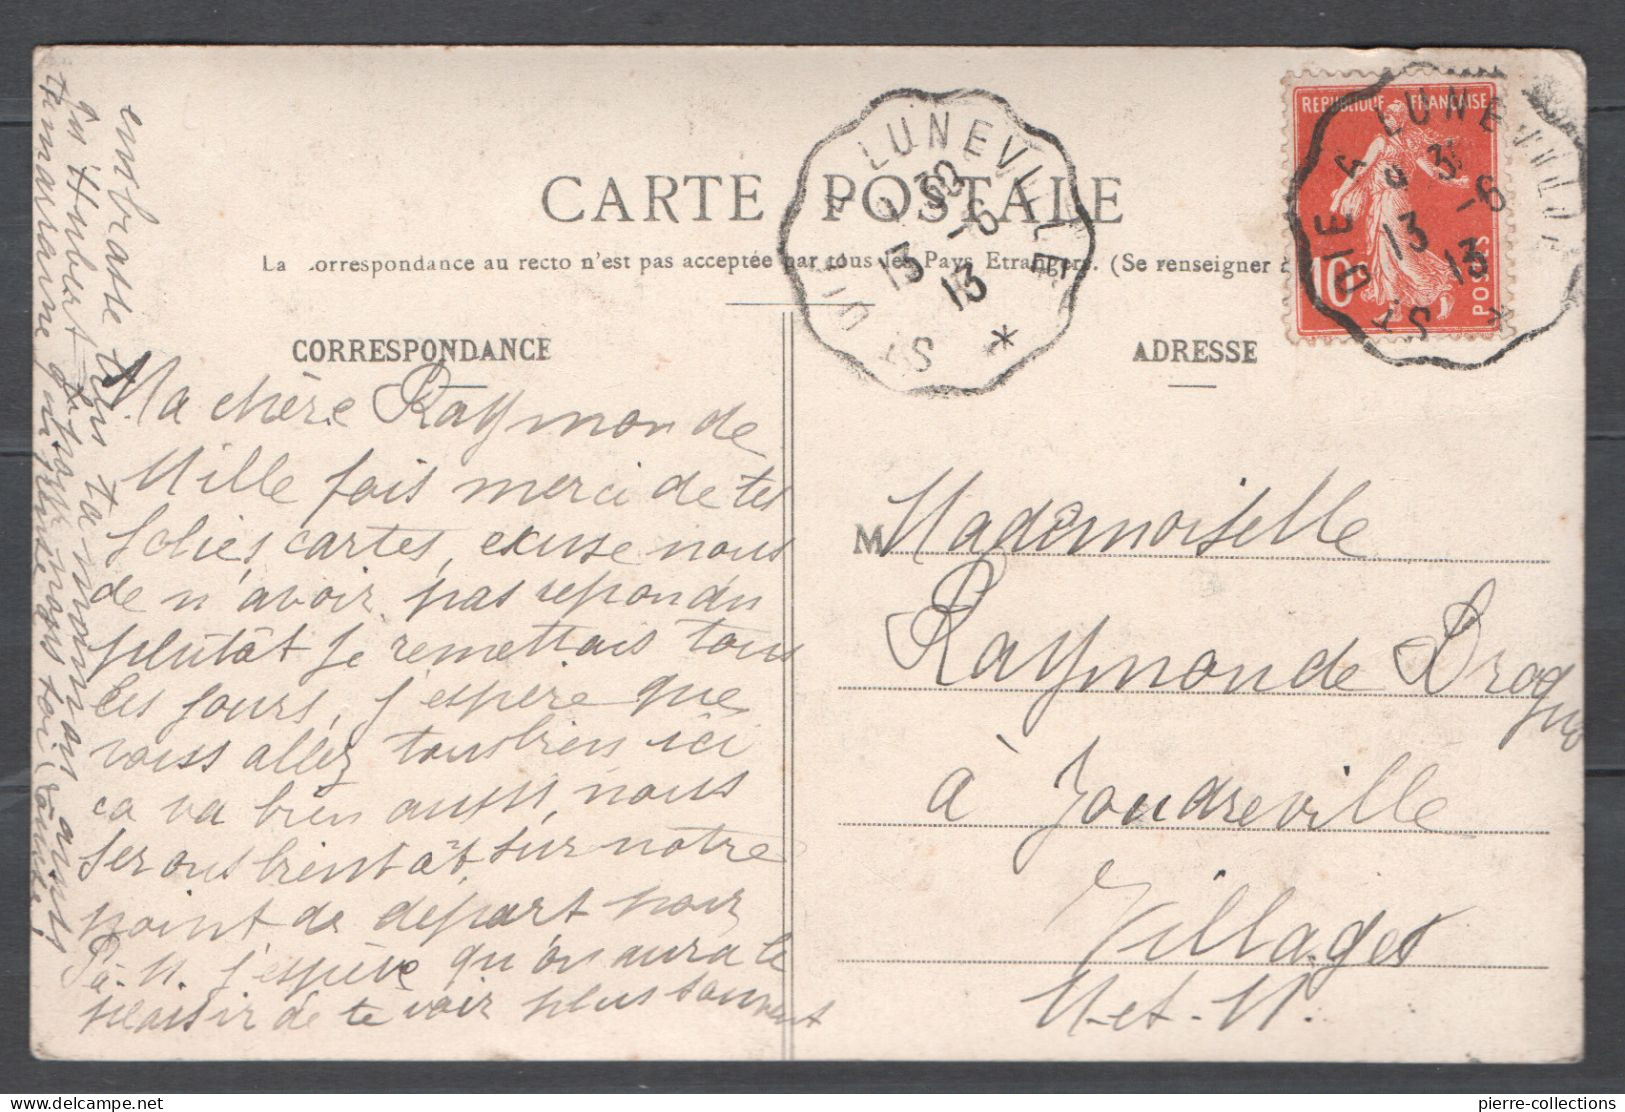 CARTE POSTALE
La correspondance au recto n'est pas acceptée par tous les Pays Etrangers. (Se renseigner
CORRESPONDANCE
ADRESSE
REPUBLIQUE FRANÇAISE
10c
POSTES
ST DIE A LUNEVILLE
13 -6
13
*
ST DIE A LUNEVILLE
13 -6
13
*
Ma chère Raymonde
Mille fois merci de tes
jolies cartes, excuse nous
de n'avoir pas repondu
plutôt je remettais tous
les jours, j'espère que
vous allez tous bien ici
ça va bien aussi, nous
serons bientôt sur notre
point de départ pour
P-à-M. j'espère qu'on aura le
plaisir de te voir plus souvent
embrasse bien ta maman ainsi
qu'Hubert pour nous toi
ta marraine qui
M Mademoiselle
Raymonde
à Joudreville
Villages
M-et-M.
pierre-collections